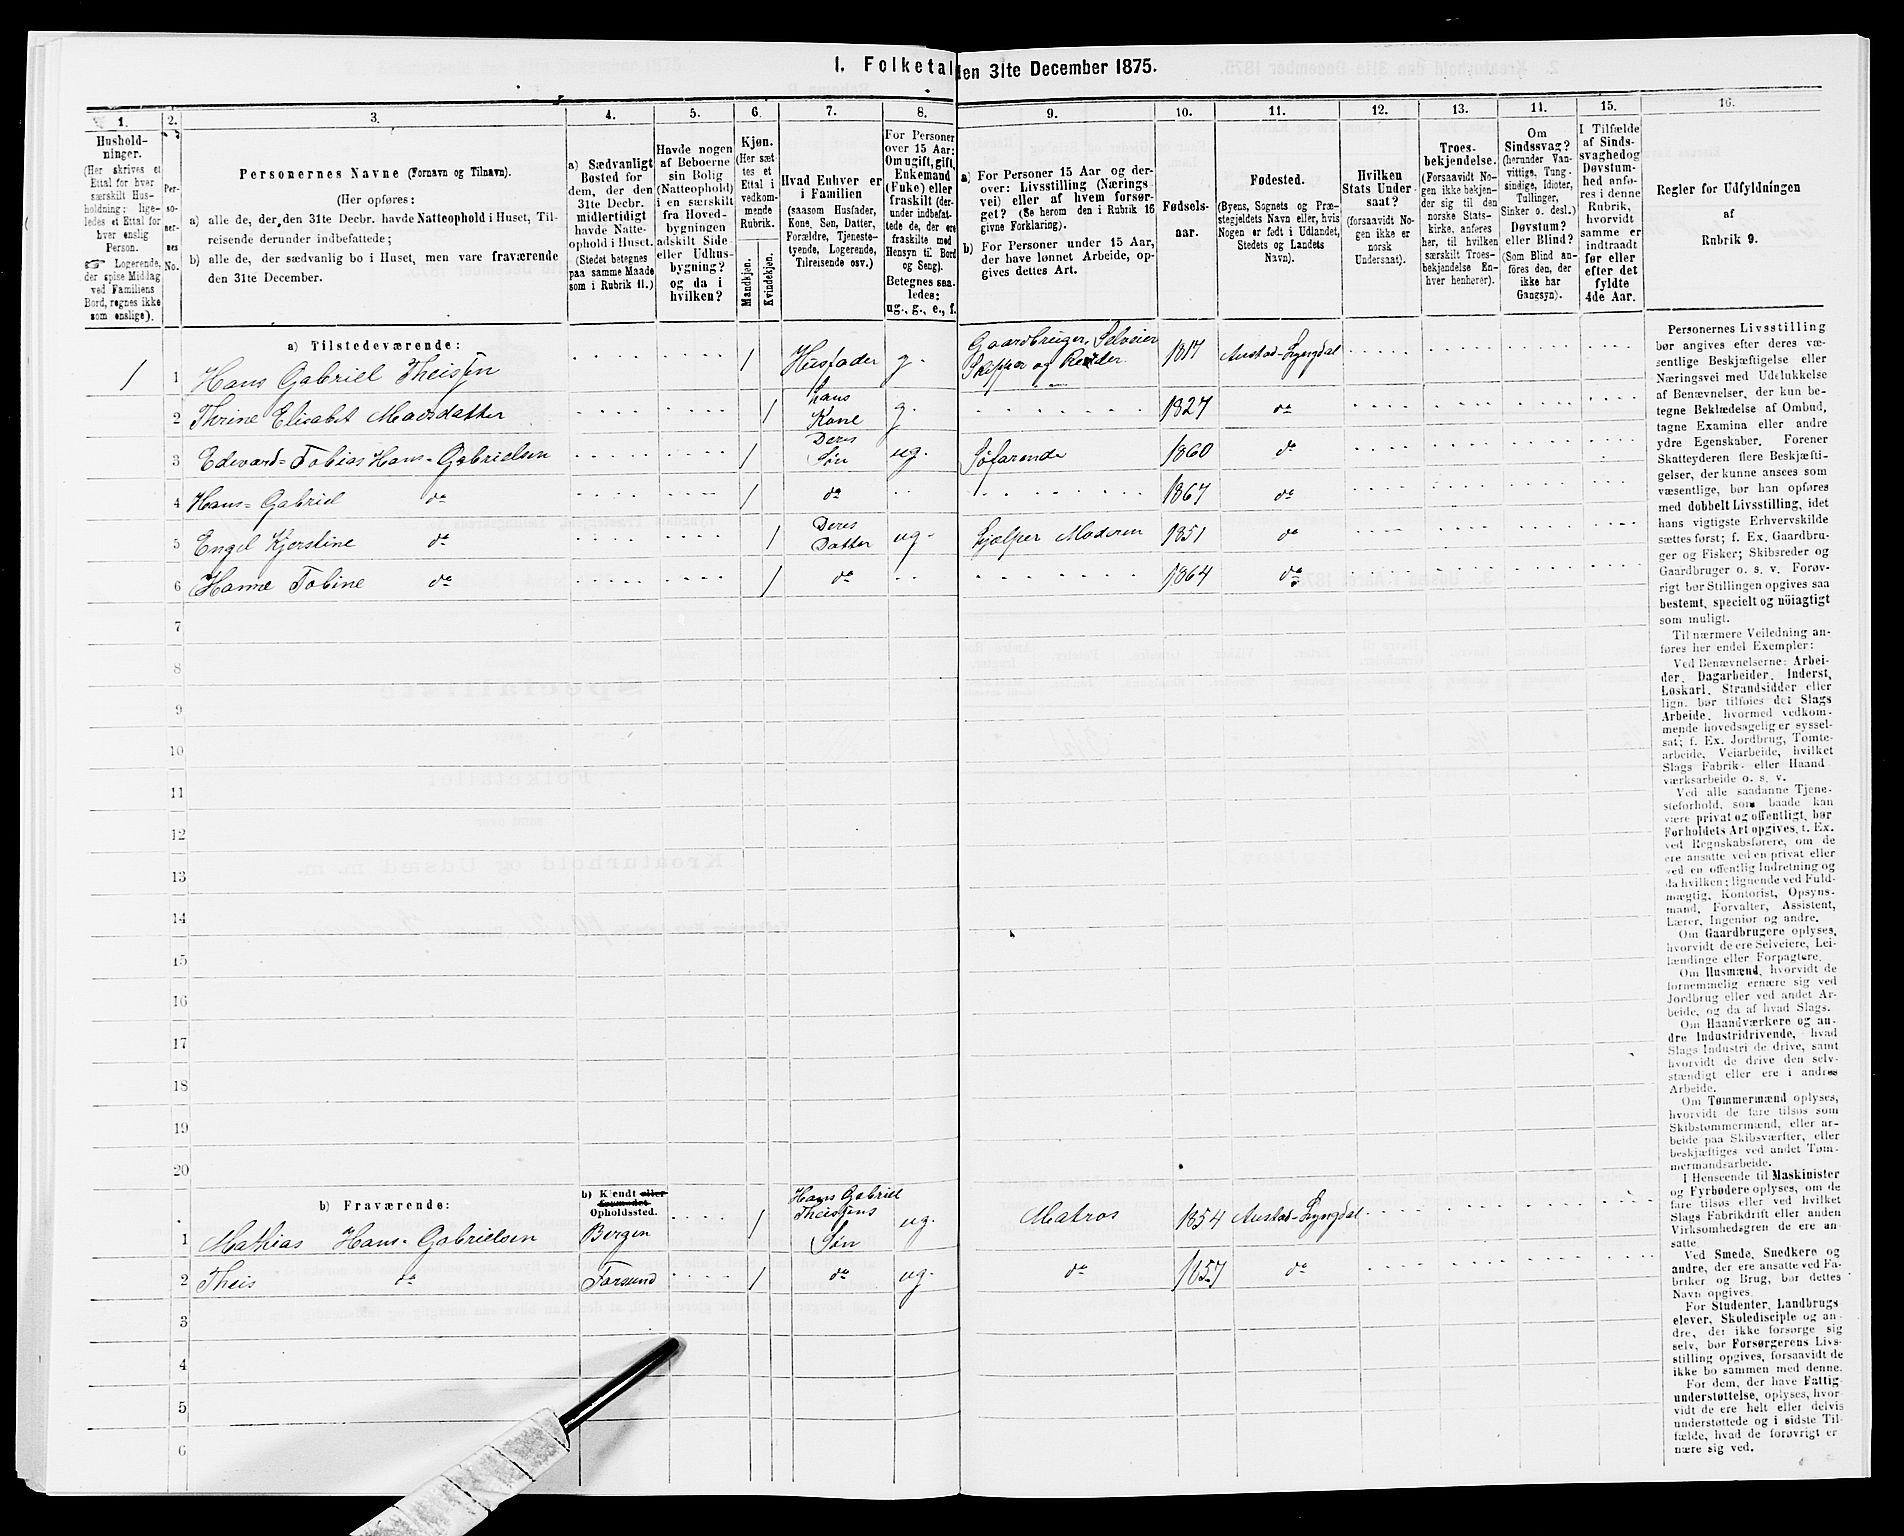 I. Folketal den 31te December 1875.
1. 2. 3. 4. 5. 6. 7. 8. 9. 10. 11. 12. 13. 14. 15. 16.
Hushold-
ninger.
(Her skrives et
Ettal for hver
særskilt Hus-
holdning; lige-
ledes et Ettal for
hver enslig
Person.
☞ Logerende,
der spise Middag
ved Familiens
Bord, regnes ikke
som enslige).
Per-
so-
ner-
nes
No.
Personernes Navne (Fornavn og Tilnavn).
(Her opføres:
a) alle de, der den 31te Decbr. havde Natteophold i Huset, Til-
reisende derunder indbefattede;
b) alle de, der sædvanlig bo i Huset, men vare fraværende
den 31te December.
a) Sædvanligt
Bosted for
dem, der den
31te Decbr.
midlertidigt
havde Natte-
ophold i Huset.
(Stedet betegnes
paa samme Maade
som i Rubrik 11.)
Havde nogen
af Beboerne
sin Bolig
(Natteophold)
i en særskilt
fra Hoved-
bygningen
adskilt Side-
eller Udhus-
bygning?
og da i
hvilken?
Kjøn.
(Her sæt-
tes et
Ettal i
vedkom-
mende
Rubrik.
Mandkjøn.
Kvindekjøn.
Hvad Enhver er
i Familien
(saasom Husfader,
Kone, Søn, Datter,
Forældre, Tjeneste-
tyende, Logerende,
Tilreisende osv.)
For Personer
over 15 Aar:
Om ugift, gift,
Enkemand
(Enke) eller
fraskilt (der-
under indbefat-
tede de, der ere
fraskilte med
Hensyn til Bord
og Seng).
Betegnes saa-
ledes:
ug., g., e., f.
a) For Personer 15 Aar og der-
over: Livsstilling (Nærings-
vei) eller af hvem forsør-
get? (Se herom den i Rubrik 16
givne Forklaring).
b) For Personer under 15 Aar,
der have lønnet Arbeide, op-
gives dettes Art.
Fødsels-
aar.
Fødested.
(Byens, Sognets og Præ-
stegjeldets Navn eller, hvis
Nogen er født i Udlandet,
Stedets og Landets
Navn).
Hvilken
Stats Under-
saat?
(forsaavidt No-
gen ikke er
norsk
Undersaat).
Troes-
bekjendelse.
(Forsaavidt No-
gen ikke bekjen-
der sig til den
norske Stats-
kirke, anføres
her, til hvilken
særskilt Troes-
bekjendelse En-
hver henhører).
Om
Sindssvag?
(herunder Van-
vittige, Tung-
sindige, Idioter,
Tullinger,
Sinker o. desl.)
Døvstum?
eller Blind?
(Som Blind an-
føres den, der
ikke har
Gangsyn).
I Tilfælde
af Sinds-
svaghed og
Døvstum-
hed anfø-
res i denne
Rubrik,
hvorvidt
samme er
indtraadt
før eller
efter det
fyldte
4de Aar.
Regler for Udfyldningen
af
Rubrik 9.
a) Tilstedeværende:
1 1 Hans Gabriel Theisen 1 Husfader g. Gaardbruger, Selveier Skipper og Reder 1817 Austad-Lyngdal
2 Thrine Elisabet Marsdatter 1 hans Kone g. 1827 do
3 Edevard-Tobias Hans-Gabrielsen 1 Deres Søn ug. Søfarende 1860 do
4 Hans-Gabriel do 1 do 1867 do
5 Engel Kjerstine do 1 Deres Datter ug. hjælper Moderen 1851 do
6 Hanne Tobine do 1 do 1864 do
7
8
9
10
11
12
13
14
15
16
17
18
19
20
b) Fraværende:
b) Kjendt eller
formodet
Opholdssted.
1 Mathias Hans-Gabrielsen Bergen 1 Hans Gabriel Theisens Søn ug. Matros 1854 Austad-Lyngdal
2 Theis do Farsund 1 do ug. do 1857 do
3
4
5
6
Personernes Livsstilling
bør angives efter deres væ-
sentlige Beskjæftigelse eller
Næringsvei med Udelukkelse
af Benævnelser, der kun be-
tegne Beklædelse af Ombud,
tagne Examina eller andre
ydre Egenskaber. Forener
Skatteyderen flere Beskjæfti-
gelser, der kunne ansees som
væsentlige, bør han opføres
med dobbelt Livsstilling, idet
hans vigtigste Erhvervskilde
sættes først; f. Ex. Gaardbru-
ger og Fisker; Skibsreder og
Gaardbruger o. s. v. Forøv-
rigt bør Stillingen opgives saa
bestemt, specielt og nöiagtigt
som muligt.
Til nærmere Veiledning an-
føres her endel Exempler:
Ved Benævnelserne: Arbei-
der, Dagarbeider, Inderst,
Løskarl, Strandsidder eller
lign. bør tilføies det Slags
Arbeide, hvormed vedkom-
mende hovedsagelig er syssel-
sat; f. Ex. Jordbrug, Tomte-
arbeide, Veiarbeide, hvilket
Slags Fabrik- eller Haand
værksarbeide o. s. v.
Ved alle saadanne Tjene-
steforhold, som baade kan
være privat og offentligt, bør
Forholdets Art opgives, t. Ex.
ved Regnskabsførere, om de
ere ansatte ved en privat eller
ved en offentlig Indretning og
da hvilken; lignende ved Fuld-
mægtig, Kontorist, Opsyns-
mand, Forvalter, Assistent,
Lærer, Ingeniør og andre.
Om Gaardbrugere oplyses,
hvorvidt de ere Selveiere, Lei-
lændinge eller Forpagtere.
Om Husmænd, hvorvidt de
fornemmelig ernære sig ved
Jordbrug eller ved andet Ar-
beide, og da af hvad Slags.
Om Haandværkere og an-
dre Industridrivende, hvad
Slags Industri de drive, samt
hvorvidt de drive den selv-
stændigt eller ere i andres
Arbeide.
Om Tømmermænd oplyses,
hvorvidt de fare tilsøs som
Skibstømmermænd, eller ar-
beide paa Skibsværfter, eller
beskjæftiges ved andet Tøm-
mermandsarbeide.
I Henseende til Maskinister
og Fyrbødere oplyses, om de
fare tilsøs eller ved hvilket
Slags Fabrikdrift eller anden
Virksomhedsgren de ere an-
satte.
Ved Smede, Snedkere og
andre, der ere ansatte ved Fa-
briker og Brug, bør dettes
Navn opgives.
For Studenter, Landbrugs
elever, Skoledisciple og an-
dre, der ikke forsørge sig
selv, bør Forsørgerens Livs-
stilling opgives, forsaavidt de
ikke bo sammen med denne.
For dem, der have Fattig-
understøttelse, oplyses, hvor-
vidt de ere helt eller delvis
understøttede og i sidste Til-
fælde, hvad de forøvrigt er
nære sig ved.